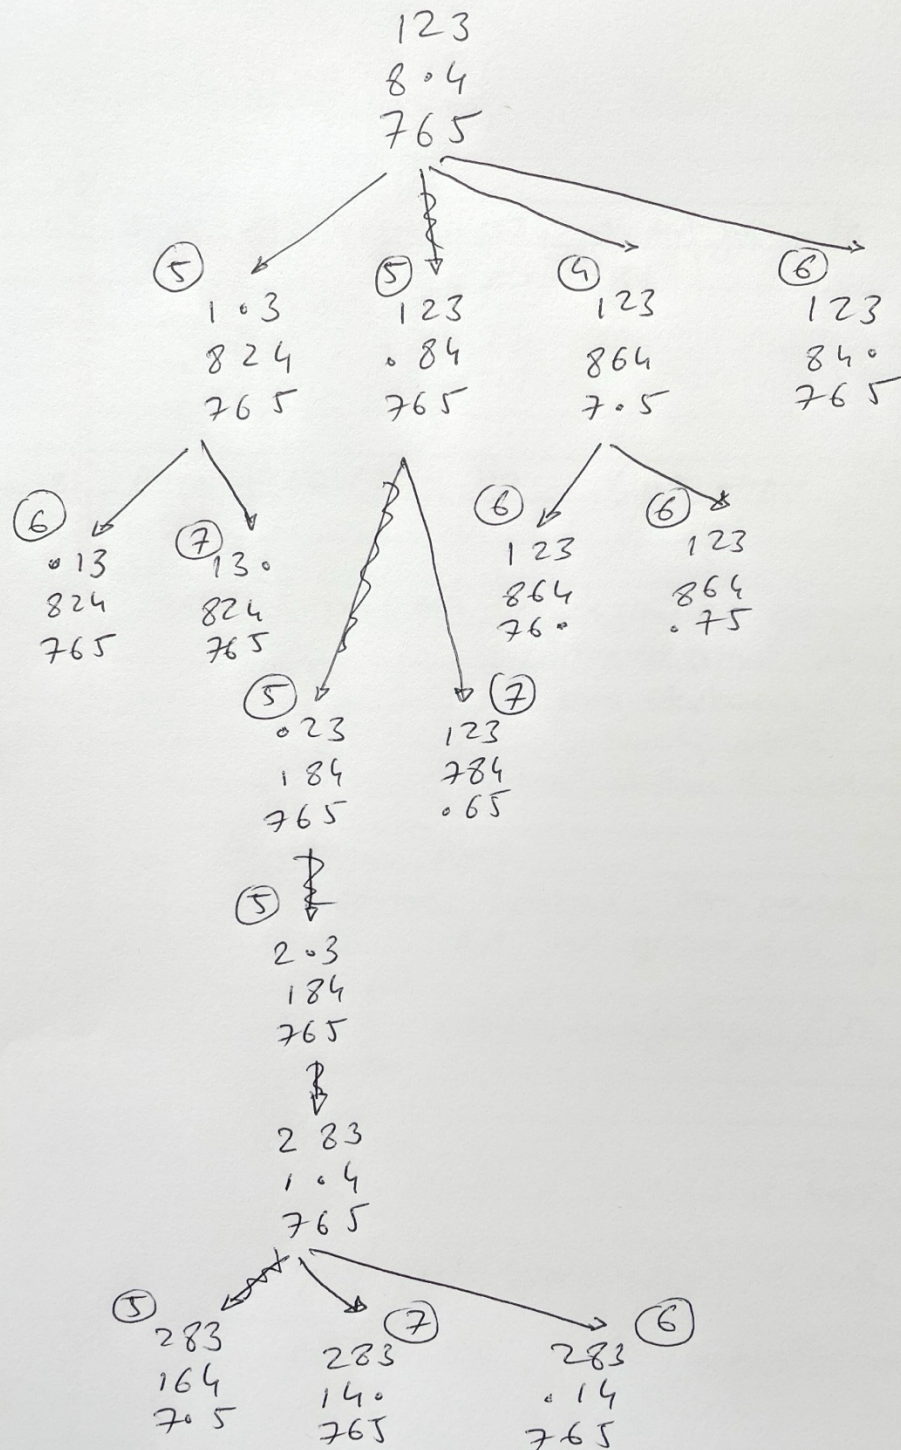 123
8.4
765
5
1.3
824
765
5
123
.84
765
4
123
864
7.5
6
123
84.
765
6
.13
824
765
7
13.
824
765
6
123
864
76.
6
123
864
.75
5
.23
184
765
7
123
784
.65
5
2.3
184
765
283
1.4
765
5
283
164
7.5
7
283
14.
765
6
283
.14
765